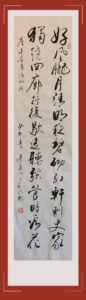 好風朧月清明夜碧砌紅軒刺史家
獨繞回廊行復歇遙聽弦管暗看花